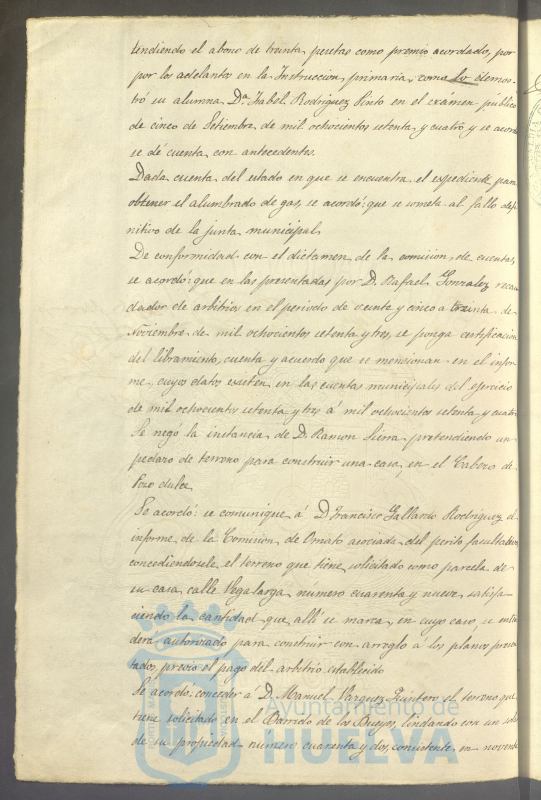 tendiendo el abono de treinta pesetas como premio acordado, por
por los adelantos en la Instruccion primaria, como lo demos-
tró su alumna, Dª Isabel Rodriguez Pinto en el exámen público
de cinco de Setiembre de mil ochocientos setenta y cuatro y se acordó
se dé cuenta con antecedentes.
Dada cuenta del estado en que se encuentra el espediente para
obtener el alumbrado de gas, se acordó: que se someta al fallo defi-
nitivo de la junta municipal,
De conformidad con el dictamen de la comision, de cuentas,
se acordó: que en las presentadas por D. Rafael Gonzalez recau
dador de arbitrios en el periodo de veinte y cinco a treinta de
Noviembre de mil ochocientos setenta y tres, se ponga certificacion
del libramiento, cuenta y acuerdo que se mencionan en el infor
me, cuyos datos existen en las cuentas municipales del ejercicio
de mil ochocientos setenta y tres á mil ochocientos setenta y cuatro
Se negó la instancia de D. Ramon Sierra pretendiendo un
pedazo de terreno para construir una casa, en el Cabezo de
Pozo dulce,
Se acordó: se comunique á D Francisco Gallardo Rodriguez el
informe de la Comision de Ornato asociada del perito facultativo
concediendosele el terreno que tiene solicitado como parcela de
su casa, calle Vegalarga número cuarenta y nueve, satisfa-
ciendo la cantidad que allí se marca, en cuyo caso, se enten
derá autorizado para construir con arreglo a los planos presen
tados, previo el pago del arbitrio establecido
Se acordó: conceder á D. Manuel Vazquez Quintero el terreno que
tiene solicitado en el Barrido de los Bueyes, lindando con un solar
de su propiedad número cuarenta y dos, consistente en noventa
Ayuntamiento de
HUELVA